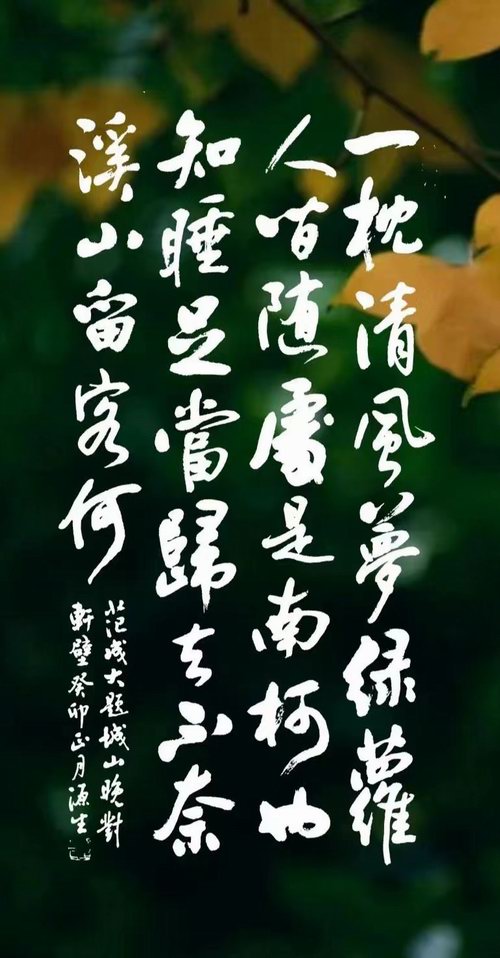 一枕清風夢绿蘿
人间随處是南柯也
知睡足當歸去不奈
溪山留客何
范成大题城山晚對
軒壁癸卯正月源生